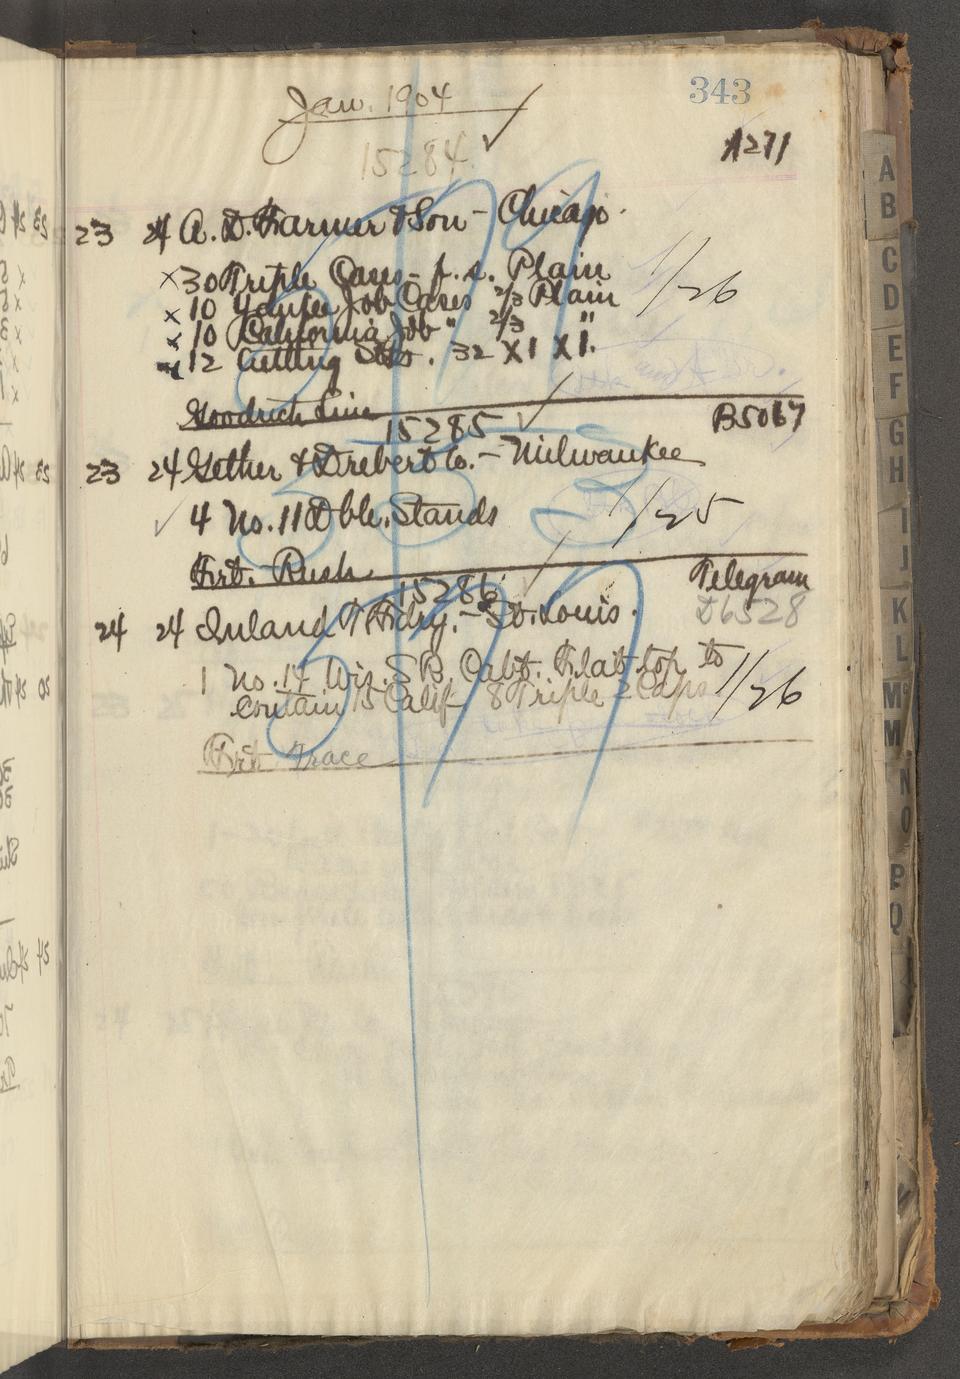 343
Jan. 1904
15284.
A271
23 24 A. D. Farmer & Son - Chicago.
x 30 Triple Cases - f. s. Plain
x 10 Yankee Job Cases 2/3 Plain 1/26
x 10 California Job " 2/3 "
x 12 Cutting Stks. 32 X 1 X 1.
Goodrich Line
15285 B5067
23 24 Gether & Drebert Co. - Milwaukee
4 No. 11 Dble. Stands 1/25
Frt. Rush.
15286 Telegram
D6528
24 24 Inland T Fdry. - St. Louis.
1 No. 14 Wis. S B. Cabt. Flat top to
contain 15 Calif 8 Triple 2 Caps 1/26
Frt. Trace
A
B
C
D
E
F
G
H
I
J
K
L
Mc
M
N
O
P
Q